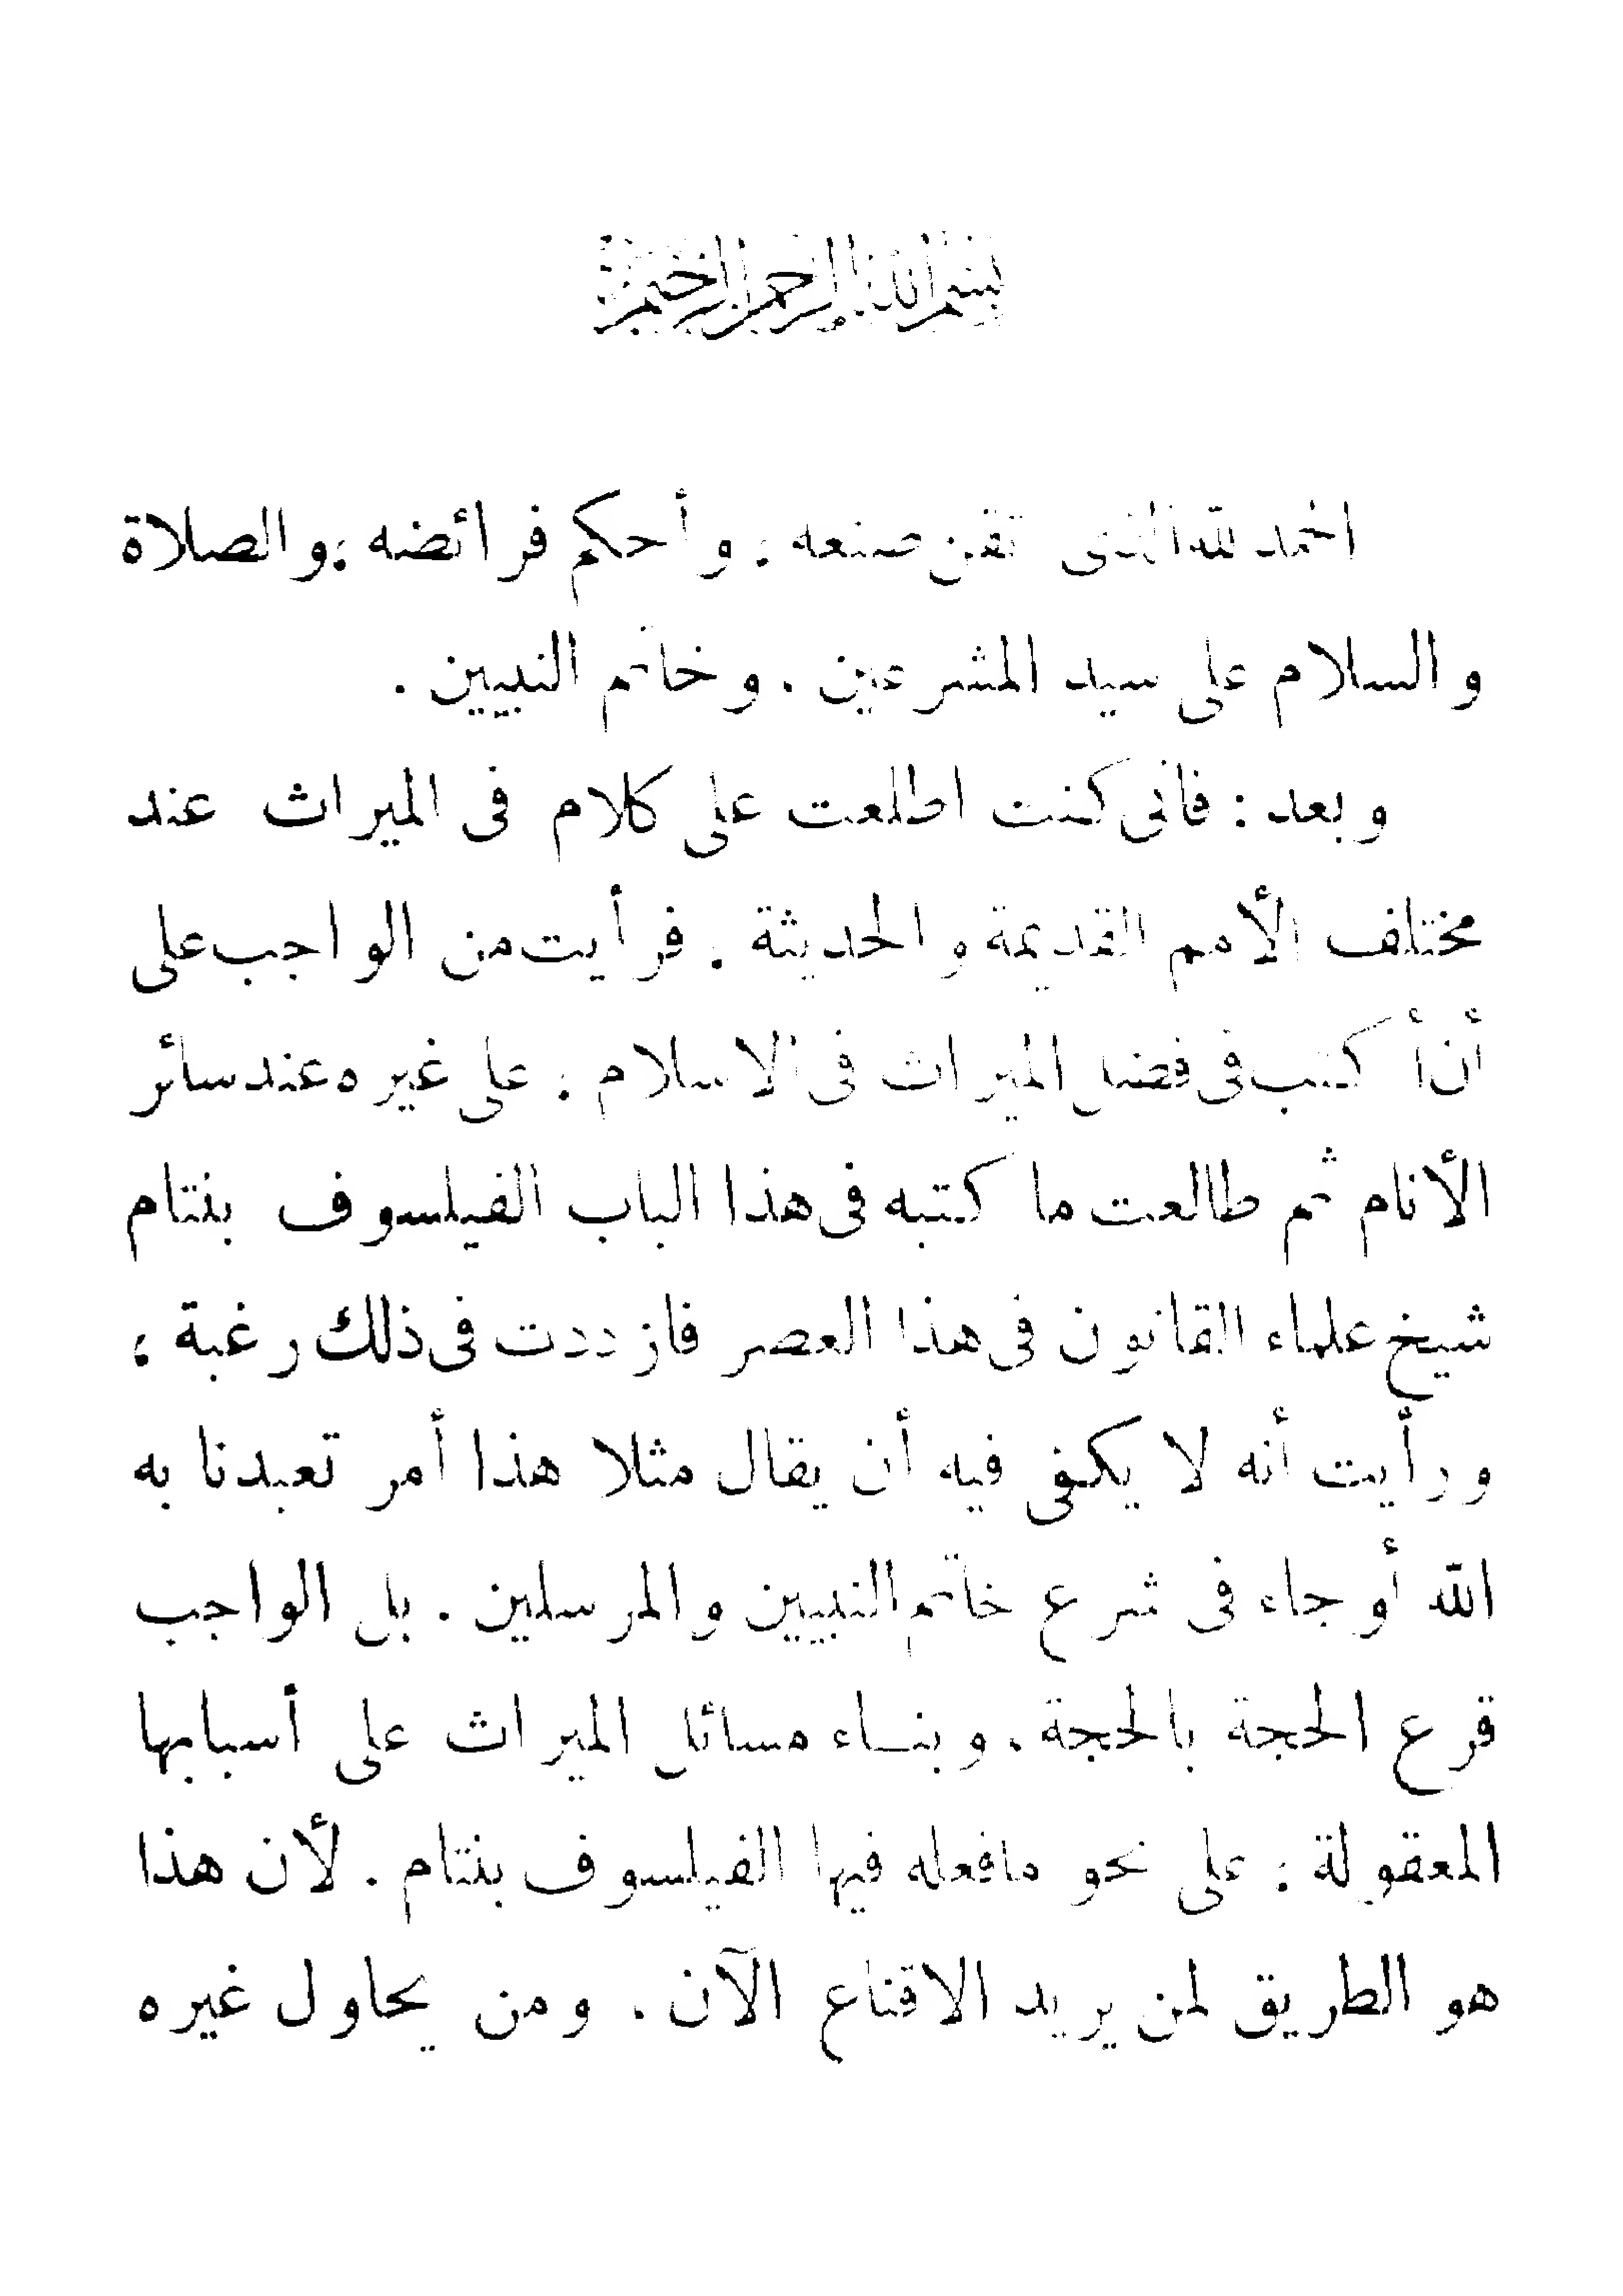 بسم الله الرحمن الرحيم
الحمد لله الذى تقن صنعه ، وأحكم فرائضه ، والصلاة
والسلام على سيد المشرعين . وخاتم النبيين .
وبعد : فانى كنت اطلعت على كلام فى الميراث عند
مختلف الأمم القديمة والحديثة . فرأيت من الواجب على
أن أكتب فى فضل الميراث فى الاسلام : على غيره عند سائر
الأنام ثم طالعت ما كتبه فى هذا الباب الفيلسوف بنتام
شيخ علماء القانون فى هذا العصر فازددت فى ذلك رغبة ؛
ورأيت أنه لا يكفى فيه أن يقال مثلا هذا أمر تعبدنا به
الله أو جاء فى شرع خاتم النبيين والمرسلين . بل الواجب
قرع الحجة بالحجة . وبناء مسائل الميراث على أسبابها
المعقولة : على نحو مافعله فيها الفيلسوف بنتام . لأن هذا
هو الطريق لمن يريد الاقناع الآن . ومن يحاول غيره